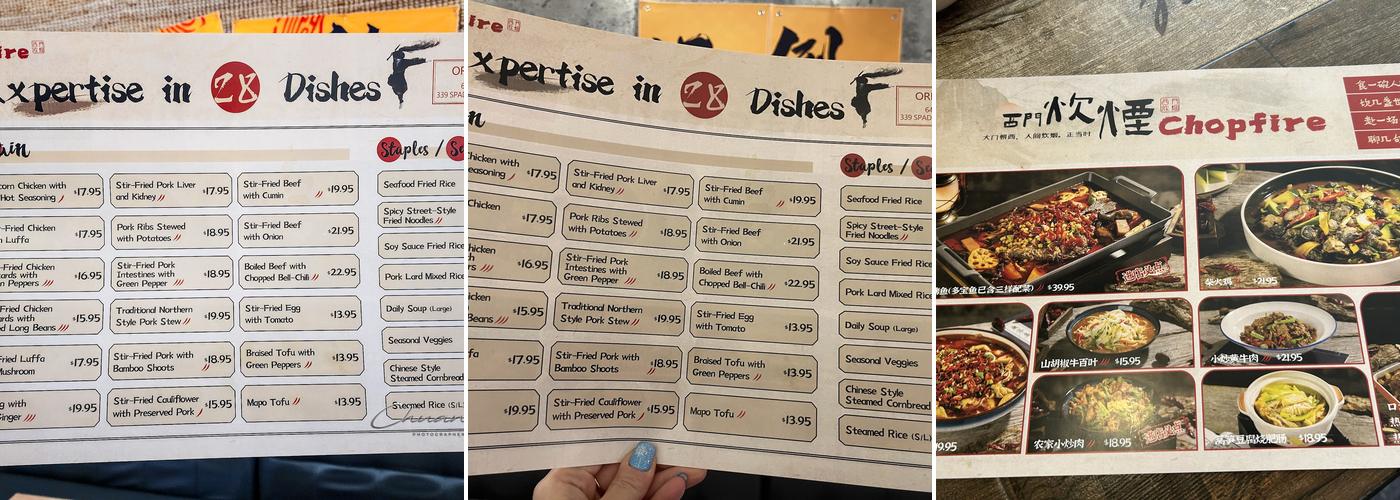 ire
xpertise in 28 Dishes
339 SPAD
Staples /
corn Chicken with
Hot Seasoning $17.95
Stir-Fried Pork Liver
and Kidney $17.95
Stir-Fried Beef
with Cumin $19.95
Seafood Fried Rice
-Fried Chicken
Luffa $17.95
Pork Ribs Stewed
with Potatoes $18.95
Stir-Fried Beef
with Onion $21.95
Spicy Street-Style
Fried Noodles
-Fried Chicken
Peppers $16.95
Stir-Fried Pork
Intestines with
Green Pepper $18.95
Boiled Beef with
Chopped Bell-Chili $22.95
Soy Sauce Fried Rice
Pork Lard Mixed Rice
Fried Chicken
with
Long Beans $15.95
Traditional Northern
Style Pork Stew $19.95
Stir-Fried Egg
with Tomato $13.95
Daily Soup (Large)
Seasonal Veggies
Fried Luffa
Mushroom $17.95
Stir-Fried Pork with
Bamboo Shoots $18.95
Braised Tofu with
Green Peppers $13.95
Chinese Style
Steamed Cornbread
with
Ginger $19.95
Stir-Fried Cauliflower
with Preserved Pork $15.95
Mapo Tofu $13.95
Steamed Rice (S/L)
ire
xpertise in 28 Dishes
339 SPAD
Staples /
Chicken with
easoning $17.95
Stir-Fried Pork Liver
and Kidney $17.95
Stir-Fried Beef
with Cumin $19.95
Seafood Fried Rice
Chicken $17.95
Pork Ribs Stewed
with Potatoes $18.95
Stir-Fried Beef
with Onion $21.95
Spicy Street-Style
Fried Noodles
Chicken $16.95
Stir-Fried Pork
Intestines with
Green Pepper $18.95
Boiled Beef with
Chopped Bell-Chili $22.95
Soy Sauce Fried Rice
Pork Lard Mixed Rice
Beans $15.95
Traditional Northern
Style Pork Stew $19.95
Stir-Fried Egg
with Tomato $13.95
Daily Soup (Large)
Seasonal Veggies
$17.95
Stir-Fried Pork with
Bamboo Shoots $18.95
Braised Tofu with
Green Peppers $13.95
Chinese Style
Steamed Cornbread
$19.95
Stir-Fried Cauliflower
with Preserved Pork $15.95
Mapo Tofu $13.95
Steamed Rice (S/L)
西門炊煙 Chopfire
大门朝西，人间炊烟，正当时
鱼(多宝鱼已含三样配菜) $39.95
柴火鸡 $21.95
山胡椒牛百叶 $15.95
小炒黄牛肉 $21.95
19.95
农家小炒肉 $18.95
莴笋豆腐烧肥肠 $18.95